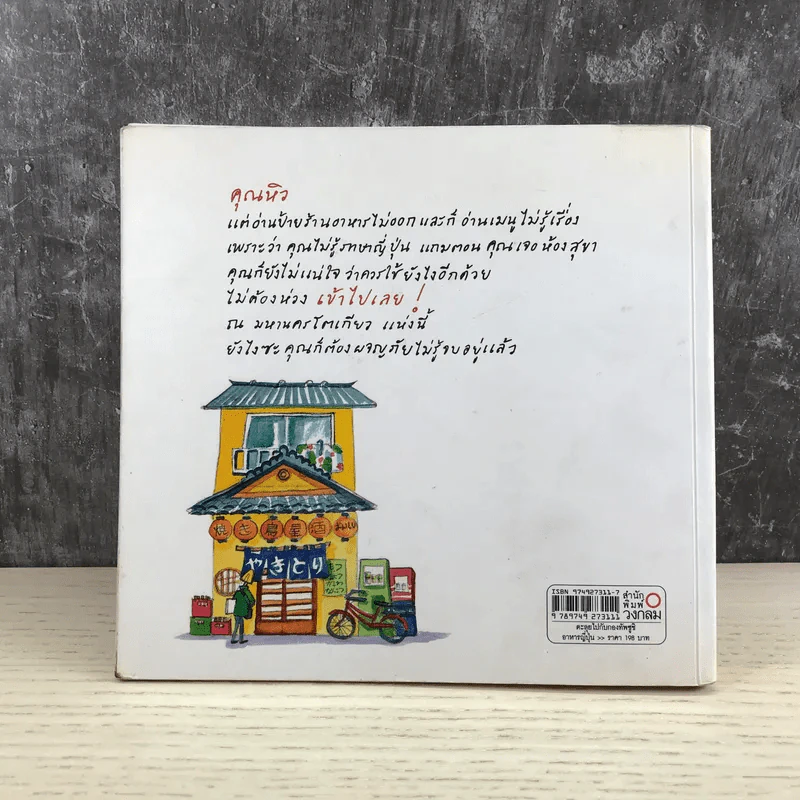 คุณหิว
แต่อ่านป้ายร้านอาหารไม่ออก และก็ อ่านเมนูไม่รู้เรื่อง
เพราะว่า คุณไม่รู้ภาษาญี่ปุ่น แถมตอน คุณเจอ ห้องสุขา
คุณก็ยังไม่แน่ใจ ว่าควรใช้ยังไงอีกด้วย
ไม่ต้องห่วง เข้าไปเลย !
ณ มหานครโตเกียว แห่งนี้
ยังไงซะ คุณก็ต้องผจญภัยไม่รู้จบอยู่แล้ว
焼き鳥屋酒
やきとり
ISBN 974927311-7
9 789749 273111
สำนักพิมพ์
วงกลม
ตะลุยไปกับกองทัพซูชิ
อาหารญี่ปุ่น >> ราคา 198 บาท